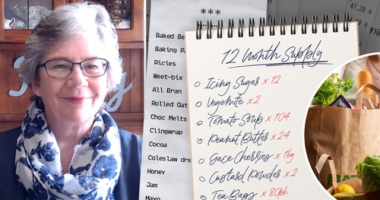 ***
Baked Be
Baking Pa
Ricies
Weet-bix
All Bran
Rolled Oat
Choc Melts
Clingwrap
Cocoa
Coleslaw dre
Honey
Jam
Mayo
12 Month Supply
Icing Sugar x 12
Vegemite x 2
Tomato Soup x 104
Peanut Butter x 24
Glace Cherries x 1kg
Custard Powder x 2
Tea Bags x 80pk